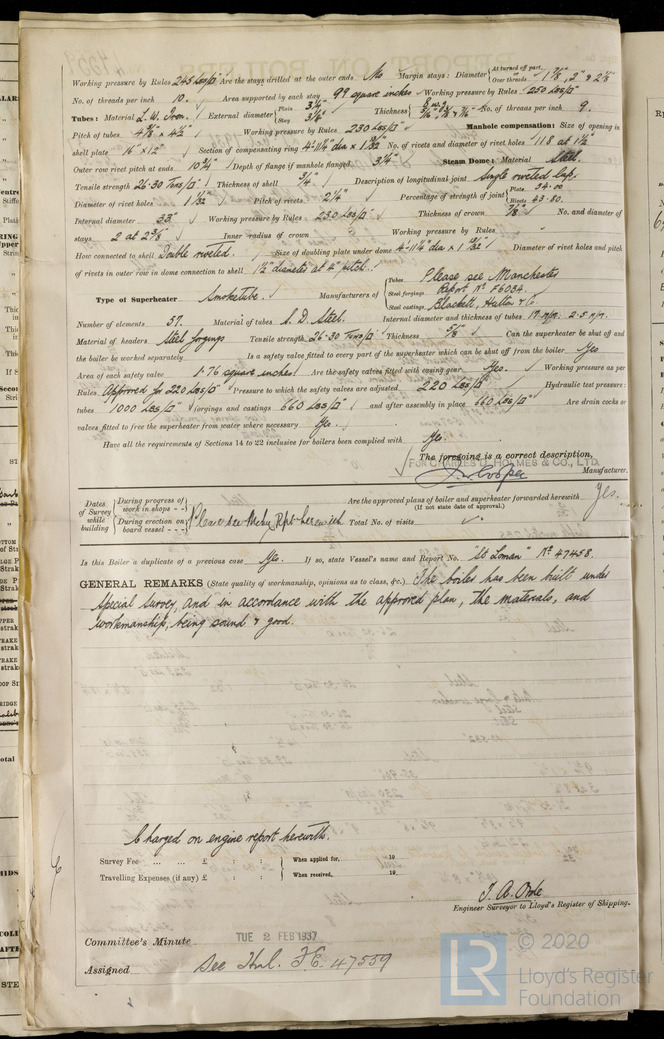 Working pressure by Rules 245 Lbs/□" Are the stays drilled at the outer ends No Margin stays: Diameter { At turned off part, or Over threads 1 7/8", 2" & 2 1/8"
No. of threads per inch 10. Area supported by each stay 99 square inches Working pressure by Rules 250 Lbs/□"
Tubes: Material L.W. Iron. External diameter { Plain 3 1/4" Stay 3 1/4" Thickness { 8 W.G. 5/16", 3/8" & 7/16" No. of threads per inch 9.
Pitch of tubes 4 3/8" x 4 1/2" Working pressure by Rules 230 Lbs/□" Manhole compensation: Size of opening in
shell plate 16" x 12" Section of compensating ring 4'-11 1/4" dia x 1 19/32" No. of rivets and diameter of rivet holes 118 at 1 1/2"
Outer row rivet pitch at ends 10 3/4" Depth of flange if manhole flanged 3 3/4" Steam Dome: Material Steel.
Tensile strength 26-30 Tons/□" Thickness of shell 3/4" Description of longitudinal joint Single riveted lap.
Diameter of rivet holes 1 1/32" Pitch of rivets 2 1/4" Percentage of strength of joint { Plate 54.00 Rivets 43.80.
Internal diameter 33" Working pressure by Rules 230 Lbs/□" Thickness of crown 7/8" No. and diameter of
stays 2 at 2 5/8" Inner radius of crown Working pressure by Rules "
How connected to shell Double riveted. Size of doubling plate under dome 4'-11 1/4" dia x 1 19/32" Diameter of rivet holes and pitch
of rivets in outer row in dome connection to shell 1 1/2" diameter at 4" pitch.
Type of Superheater Smoketube. Manufacturers of { Tubes Please see Manchester
Steel forgings Report No F6034.
Steel castings Blackett, Hutton & Co.
Number of elements 57. Material of tubes S. D. Steel. Internal diameter and thickness of tubes 17 m/m. 2.5 m/m.
Material of headers Steel forgings Tensile strength 26-30 Tons/□" Thickness 5/8" Can the superheater be shut off and
the boiler be worked separately Is a safety valve fitted to every part of the superheater which can be shut off from the boiler Yes
Area of each safety valve 1.76 square inches Are the safety valves fitted with easing gear Yes. Working pressure as per
Rules Approved for 220 Lbs/□" Pressure to which the safety valves are adjusted 220 Lbs/□" Hydraulic test pressure:
tubes 1000 Lbs/□" forgings and castings 660 Lbs/□" and after assembly in place 660 Lbs/□" Are drain cocks or
valves fitted to free the superheater from water where necessary Yes.
Have all the requirements of Sections 14 to 22 inclusive for boilers been complied with Yes.
The foregoing is a correct description,
FOR CHARLES D. HOLMES & CO., LTD.
Manufacturer.
Dates of Survey while building { During progress of work in shops - - During erection on board vessel - - - Please see Mchy Rpt herewith Are the approved plans of boiler and superheater forwarded herewith Yes.
(If not state date of approval.)
Total No. of visits
Is this Boiler a duplicate of a previous case Yes. If so, state Vessel's name and Report No. "St Loman" No 47458.
GENERAL REMARKS (State quality of workmanship, opinions as to class, &c.) The boiler has been built under
special survey, and in accordance with the approved plan, the materials, and
workmanship, being sound & good.
Charged on engine report herewith.
Survey Fee ... ... £ : : When applied for, 19
Travelling Expenses (if any) £ : : When received, 19
Engineer Surveyor to Lloyd's Register of Shipping.
Committee's Minute TUE 2 FEB 1937
Assigned See Hul. F.E. 47559
LR © 2020
Lloyd's Register
Foundation